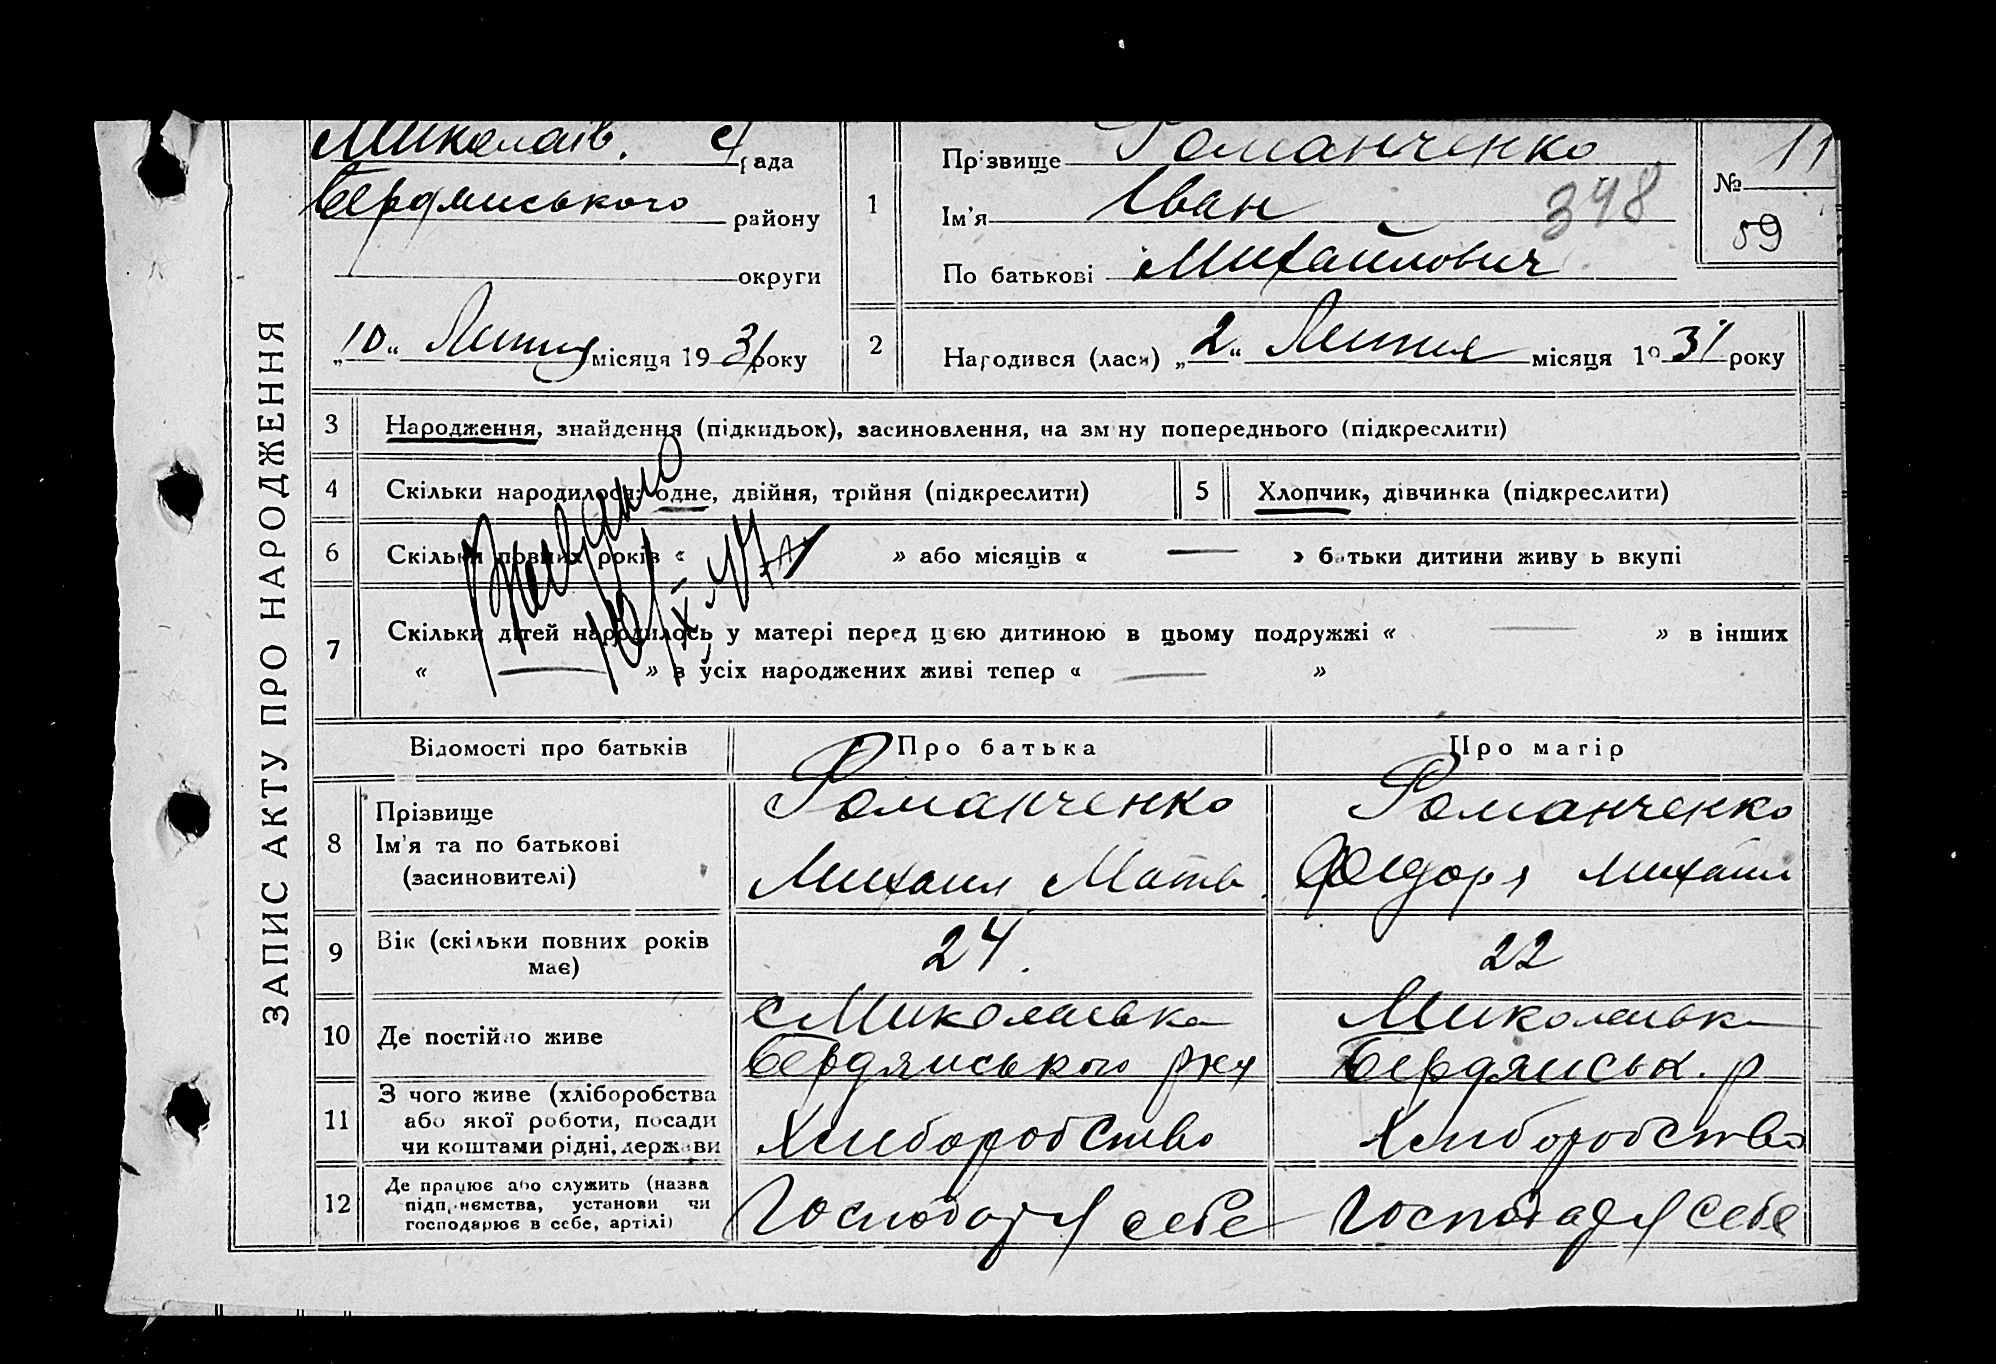 ЗАПИС АКТУ ПРО НАРОДЖЕННЯ
Миколаїв. с/рада
Бердянського району
округи
„10“ Лютня місяця 1931 року
1
Прізвище Романченко
Ім'я Іван
По батькові Михайлович
348
№ 11
59
2 Народився (лася) „2“ Лютня місяця 1931 року
3 Народження, знайдення (підкидьок), засиновлення, на зміну попереднього (підкреслити)
4 Скільки народилося: одне, двійня, трійня (підкреслити)
5 Хлопчик, дівчинка (підкреслити)
6 Скільки повних років « » або місяців « — » батьки дитини живуть вкупі
7 Скільки дітей народилось у матері перед цією дитиною в цьому подружжі « — » в інших
« — » в усіх народжених живі тепер « — »
Відомості про батьків Про батька Про матір
8 Прізвище
Ім'я та по батькові
(засиновителі)
Романченко
Михаил Матв.
Романченко
Федоря Михаил
9 Вік (скільки повних років
має)
24.
22
10 Де постійно живе
с Миколаївка
Бердянського р-ну
Миколаївка
Бердянськ. р
11 З чого живе (хліборобства
або якої роботи, посади
чи коштами рідні, держави
Хлиборобство
Хлиборобство
12 Де працює або служить (назва
підприємства, установи чи
господарює в себе, артілі)
Господар я себе
Господар я себе